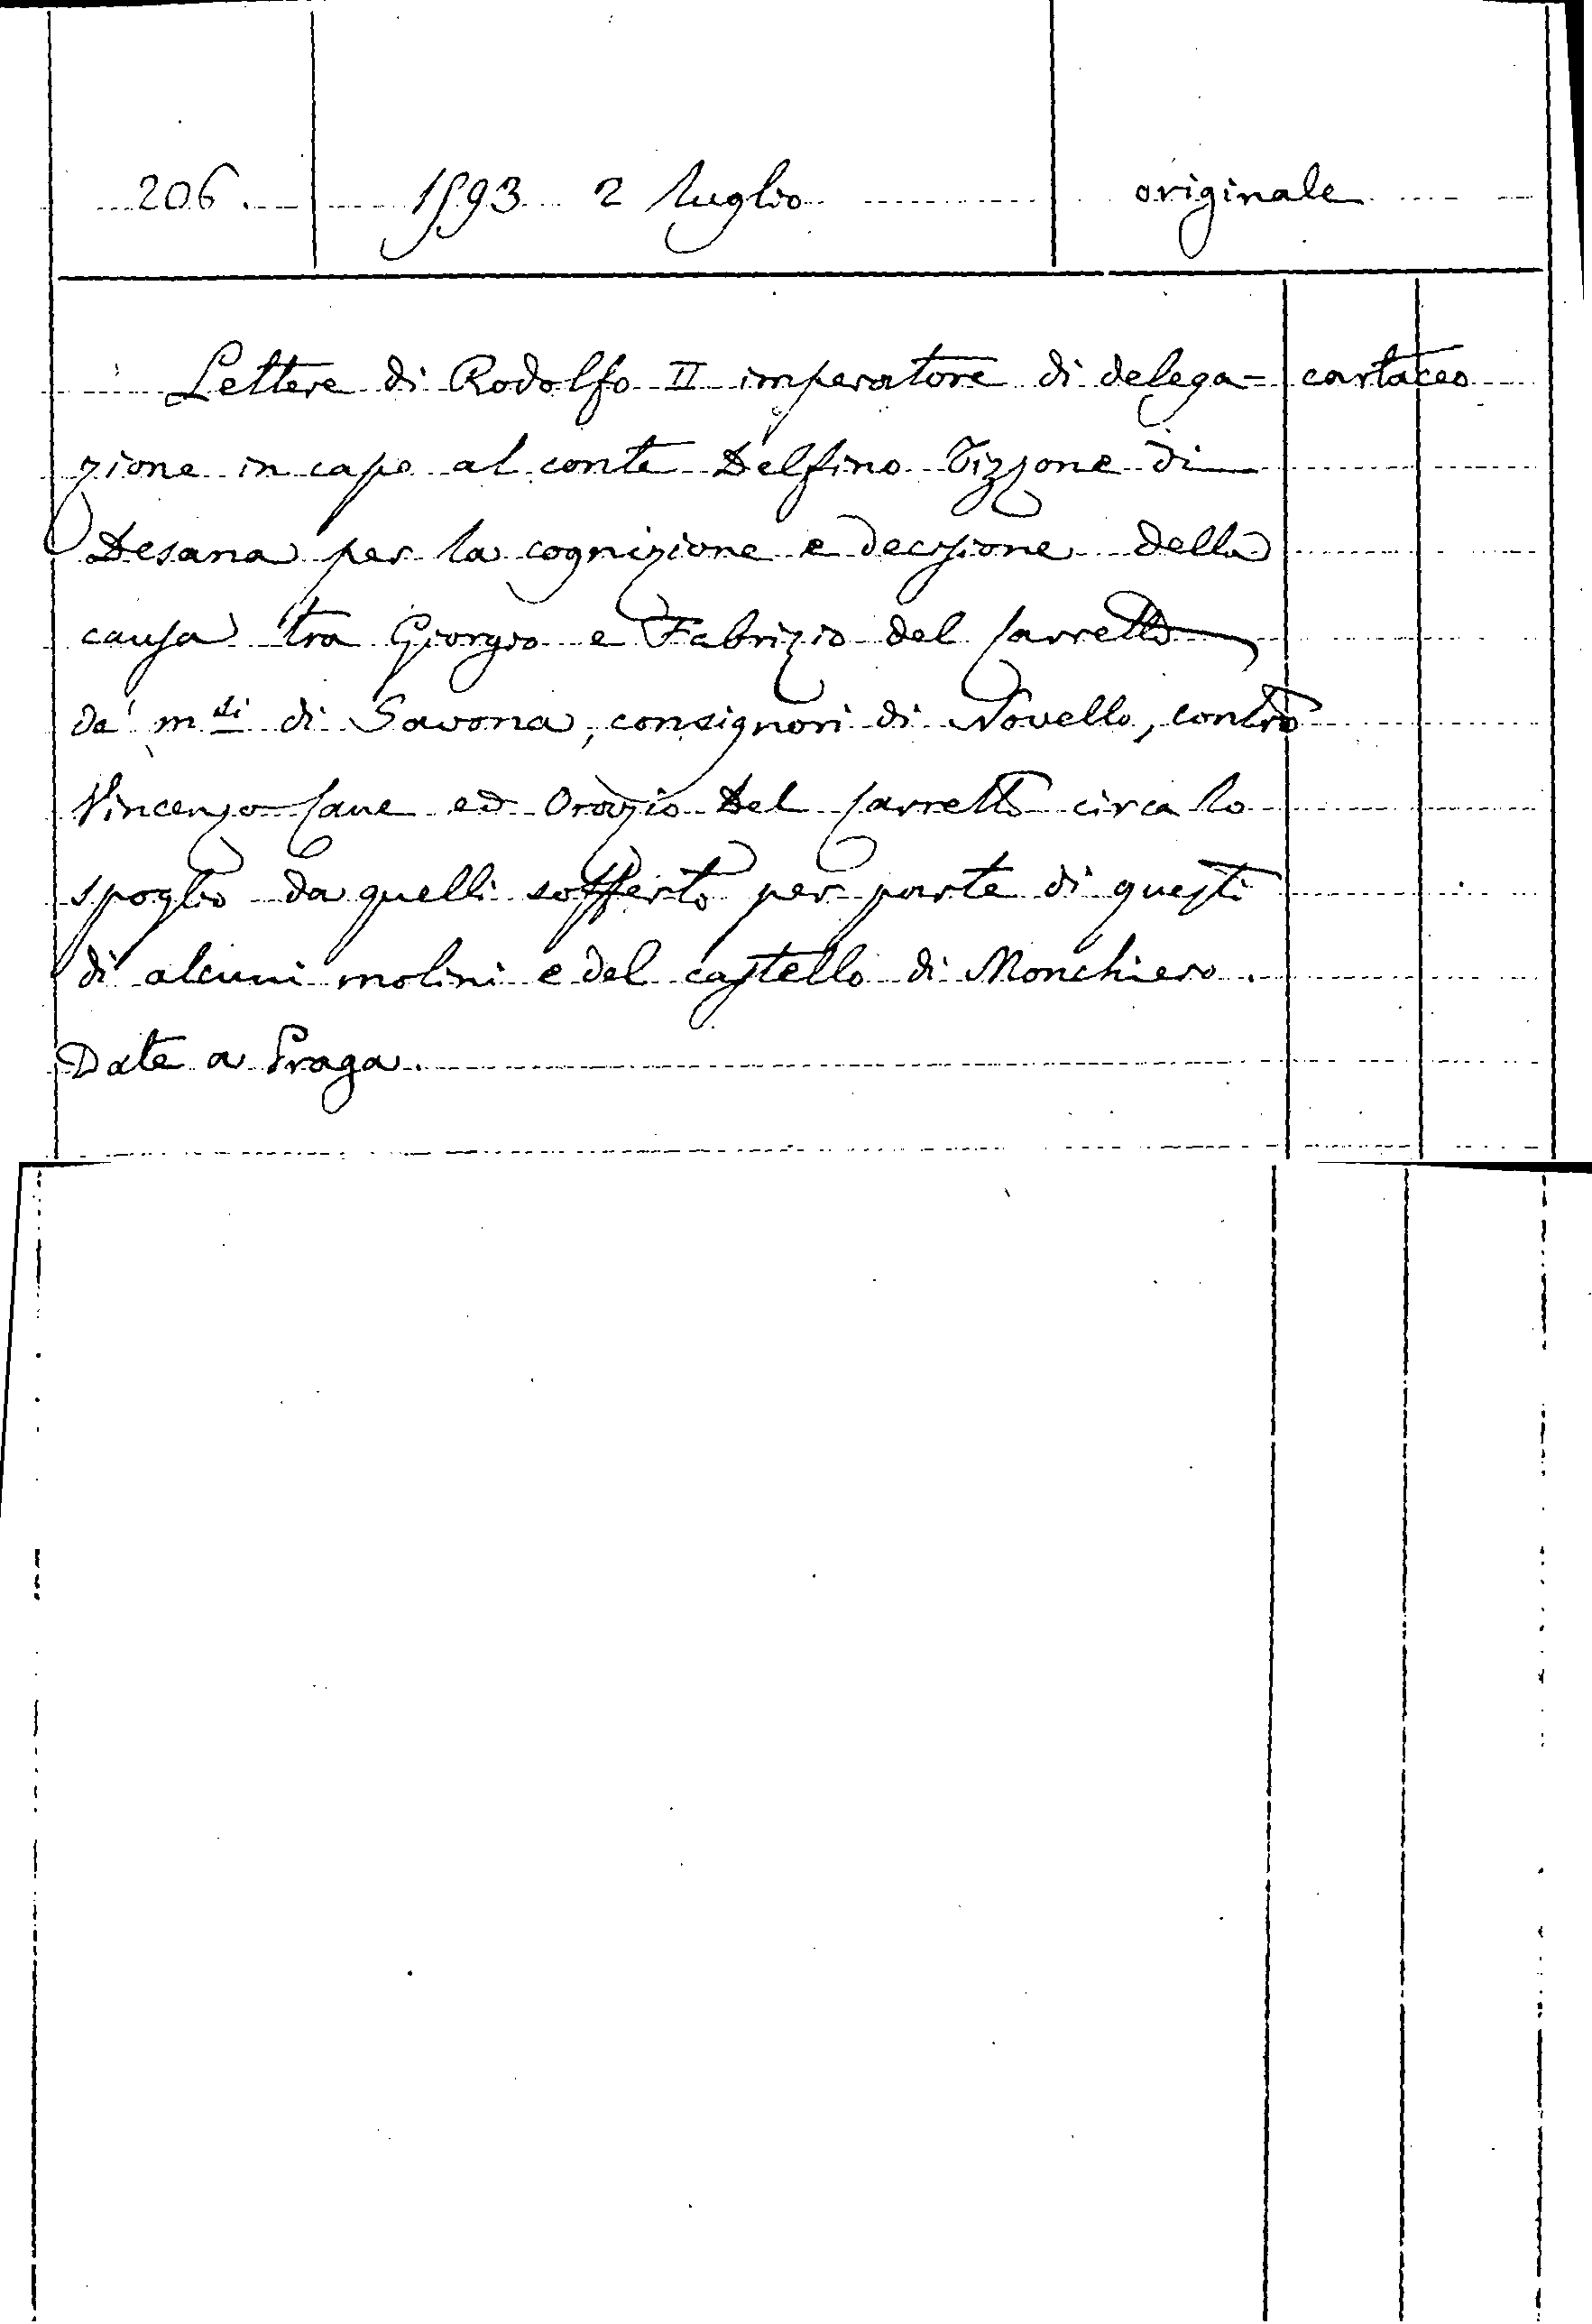 206. 1593 2 luglio originale
Lettere di Rodolfo II imperatore di delega- cartaceo
zione in capo al conte Delfino Tizzone di
Desana per la cognizione e decisione della
causa tra Giorgio e Fabrizio del Carretto
de' m.si di Savona, consignori di Novello, contro
Vincenzo Cane ed Orazio Del Carretto circa lo
spoglio da quelli sofferto per parte di questi
di alcuni molini e del castello di Monchiero.
Date a Praga.